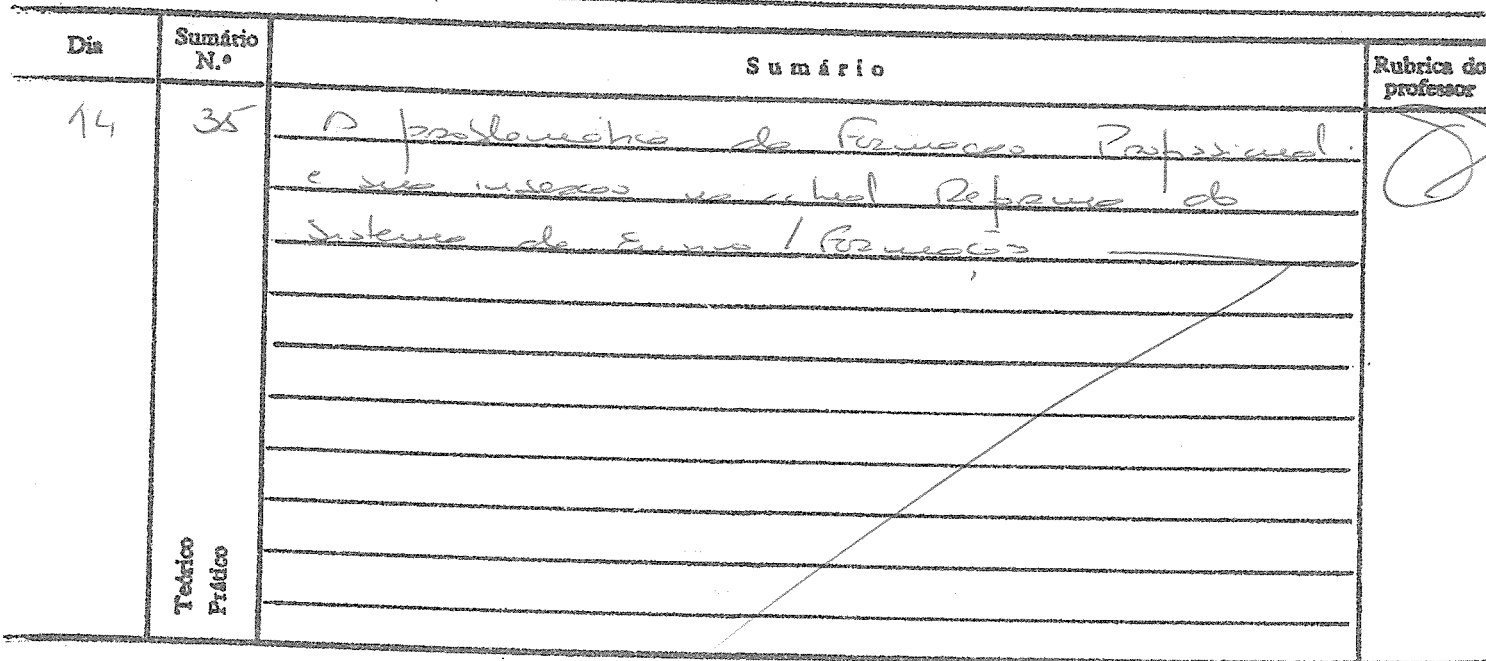 Dia
Sumário
N.º
Sumário
Rubrica do
professor
14
35
A problemática da Formação Profissional
e sua inserção na actual Reforma do
Sistema de Ensino / Formação
Teórico
Prático